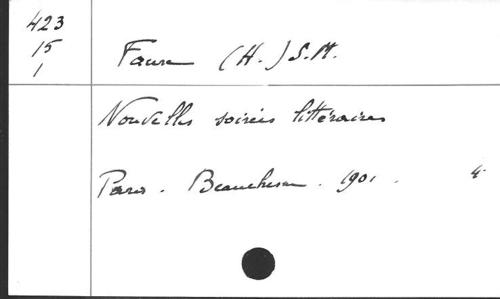 423
15
1
Faure (H.) S.M.
Nouvelles soirées littéraires
Paris. Beauchesne. 1901. 4°